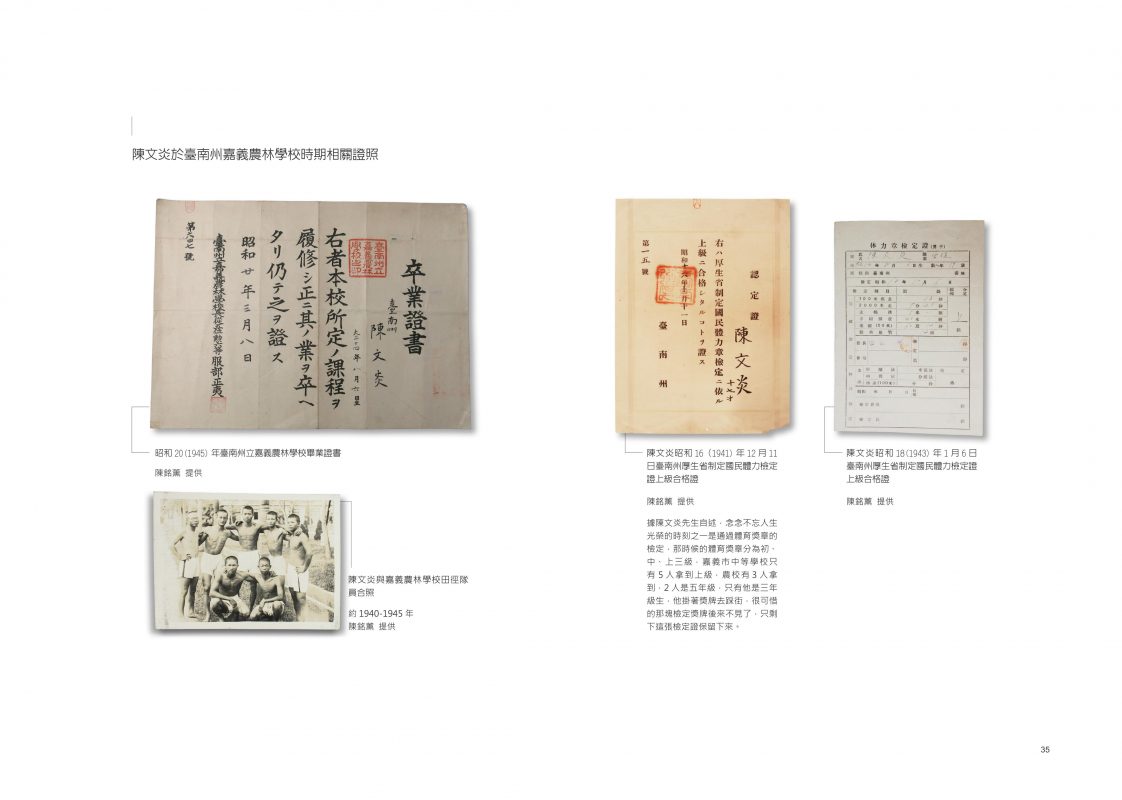 陳文炎於臺南州嘉義農林學校時期相關證照
卒業證書
臺南州
陳文炎
大正十四年八月六日生
臺南州立
嘉義農林
學校之印
右者本校所定ノ課程ヲ
履修シ正ニ其ノ業ヲ卒ヘ
タリ仍テ之ヲ證ス
昭和廿年三月八日
臺南州立嘉義農林學校長
服部正夷
昭和 20 (1945) 年臺南州立嘉義農林學校畢業證書
陳銘薰 提供
陳文炎與嘉義農林學校田徑隊
員合照
約 1940-1945 年
陳銘薰 提供
認定證
陳文炎
右ハ厚生省制定國民體力章檢定ニ依ル
上級ニ合格シタルコトヲ證ス
昭和十六年十二月十一日
臺南州
第一五號
陳文炎昭和 16 (1941) 年 12 月 11
日臺南州厚生省制定國民體力檢定
證上級合格證
陳銘薰 提供
據陳文炎先生自述，念念不忘人生
光榮的時刻之一是通過體育獎章的
檢定，那時候的體育獎章分為初、
中、上三級，嘉義市中等學校只
有 5 人拿到上級，農校有 3 人拿
到，2 人是五年級，只有他是三年
級生，他掛著獎牌去踩街，很可惜
的那塊檢定獎牌後來不見了，只剩
下這張檢定證保留下來。
体力章檢定證(男子)
陳文炎昭和 18 (1943) 年 1 月 6 日
臺南州厚生省制定國民體力檢定證
上級合格證
陳銘薰 提供
35